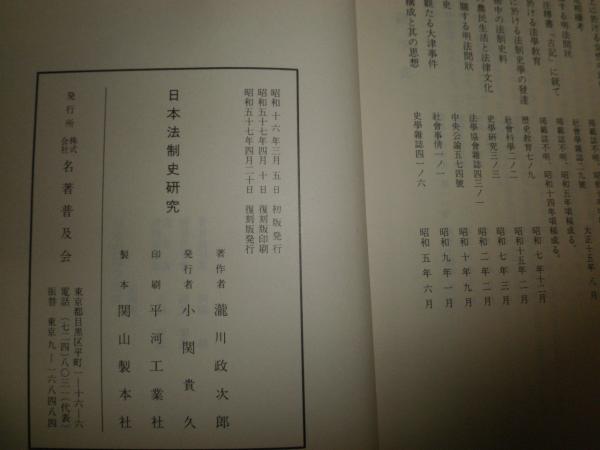 に於ける法學教育
に於ける法制史學の發達
術中の法制史料
農民生活と法律文化
關する明法問狀
史
觀たる大津事件
構成と其の思想
社會學雜誌二九號
大正十五年八月
掲載誌不明、昭和五年頃稿成る。
掲載誌不明、昭和十四年頃稿成る。
歷史教育七ノ九
昭和七年十二月
社會科學二ノ二
昭和十五年二月
史學研究三ノ三
昭和七年三月
法學協會雜誌四三ノ一
昭和二年二月
中央公論五七四號
昭和十年九月
社會事情一ノ一
昭和九年一月
史學雜誌四一ノ六
昭和五年六月
昭和十六年三月五日 初版発行
昭和五十七年四月十日 復刻版印刷
昭和五十七年四月二十日 復刻版発行
日本法制史研究
著作者 瀧川政次郎
発行者 小関貴久
印刷 平河工業社
製本 関山製本社
発行所 株式会社 名著普及会
東京都目黒区平町一―一六―六
電話(七二四)八〇三一(代表)
振替 東京九―一六八四八四